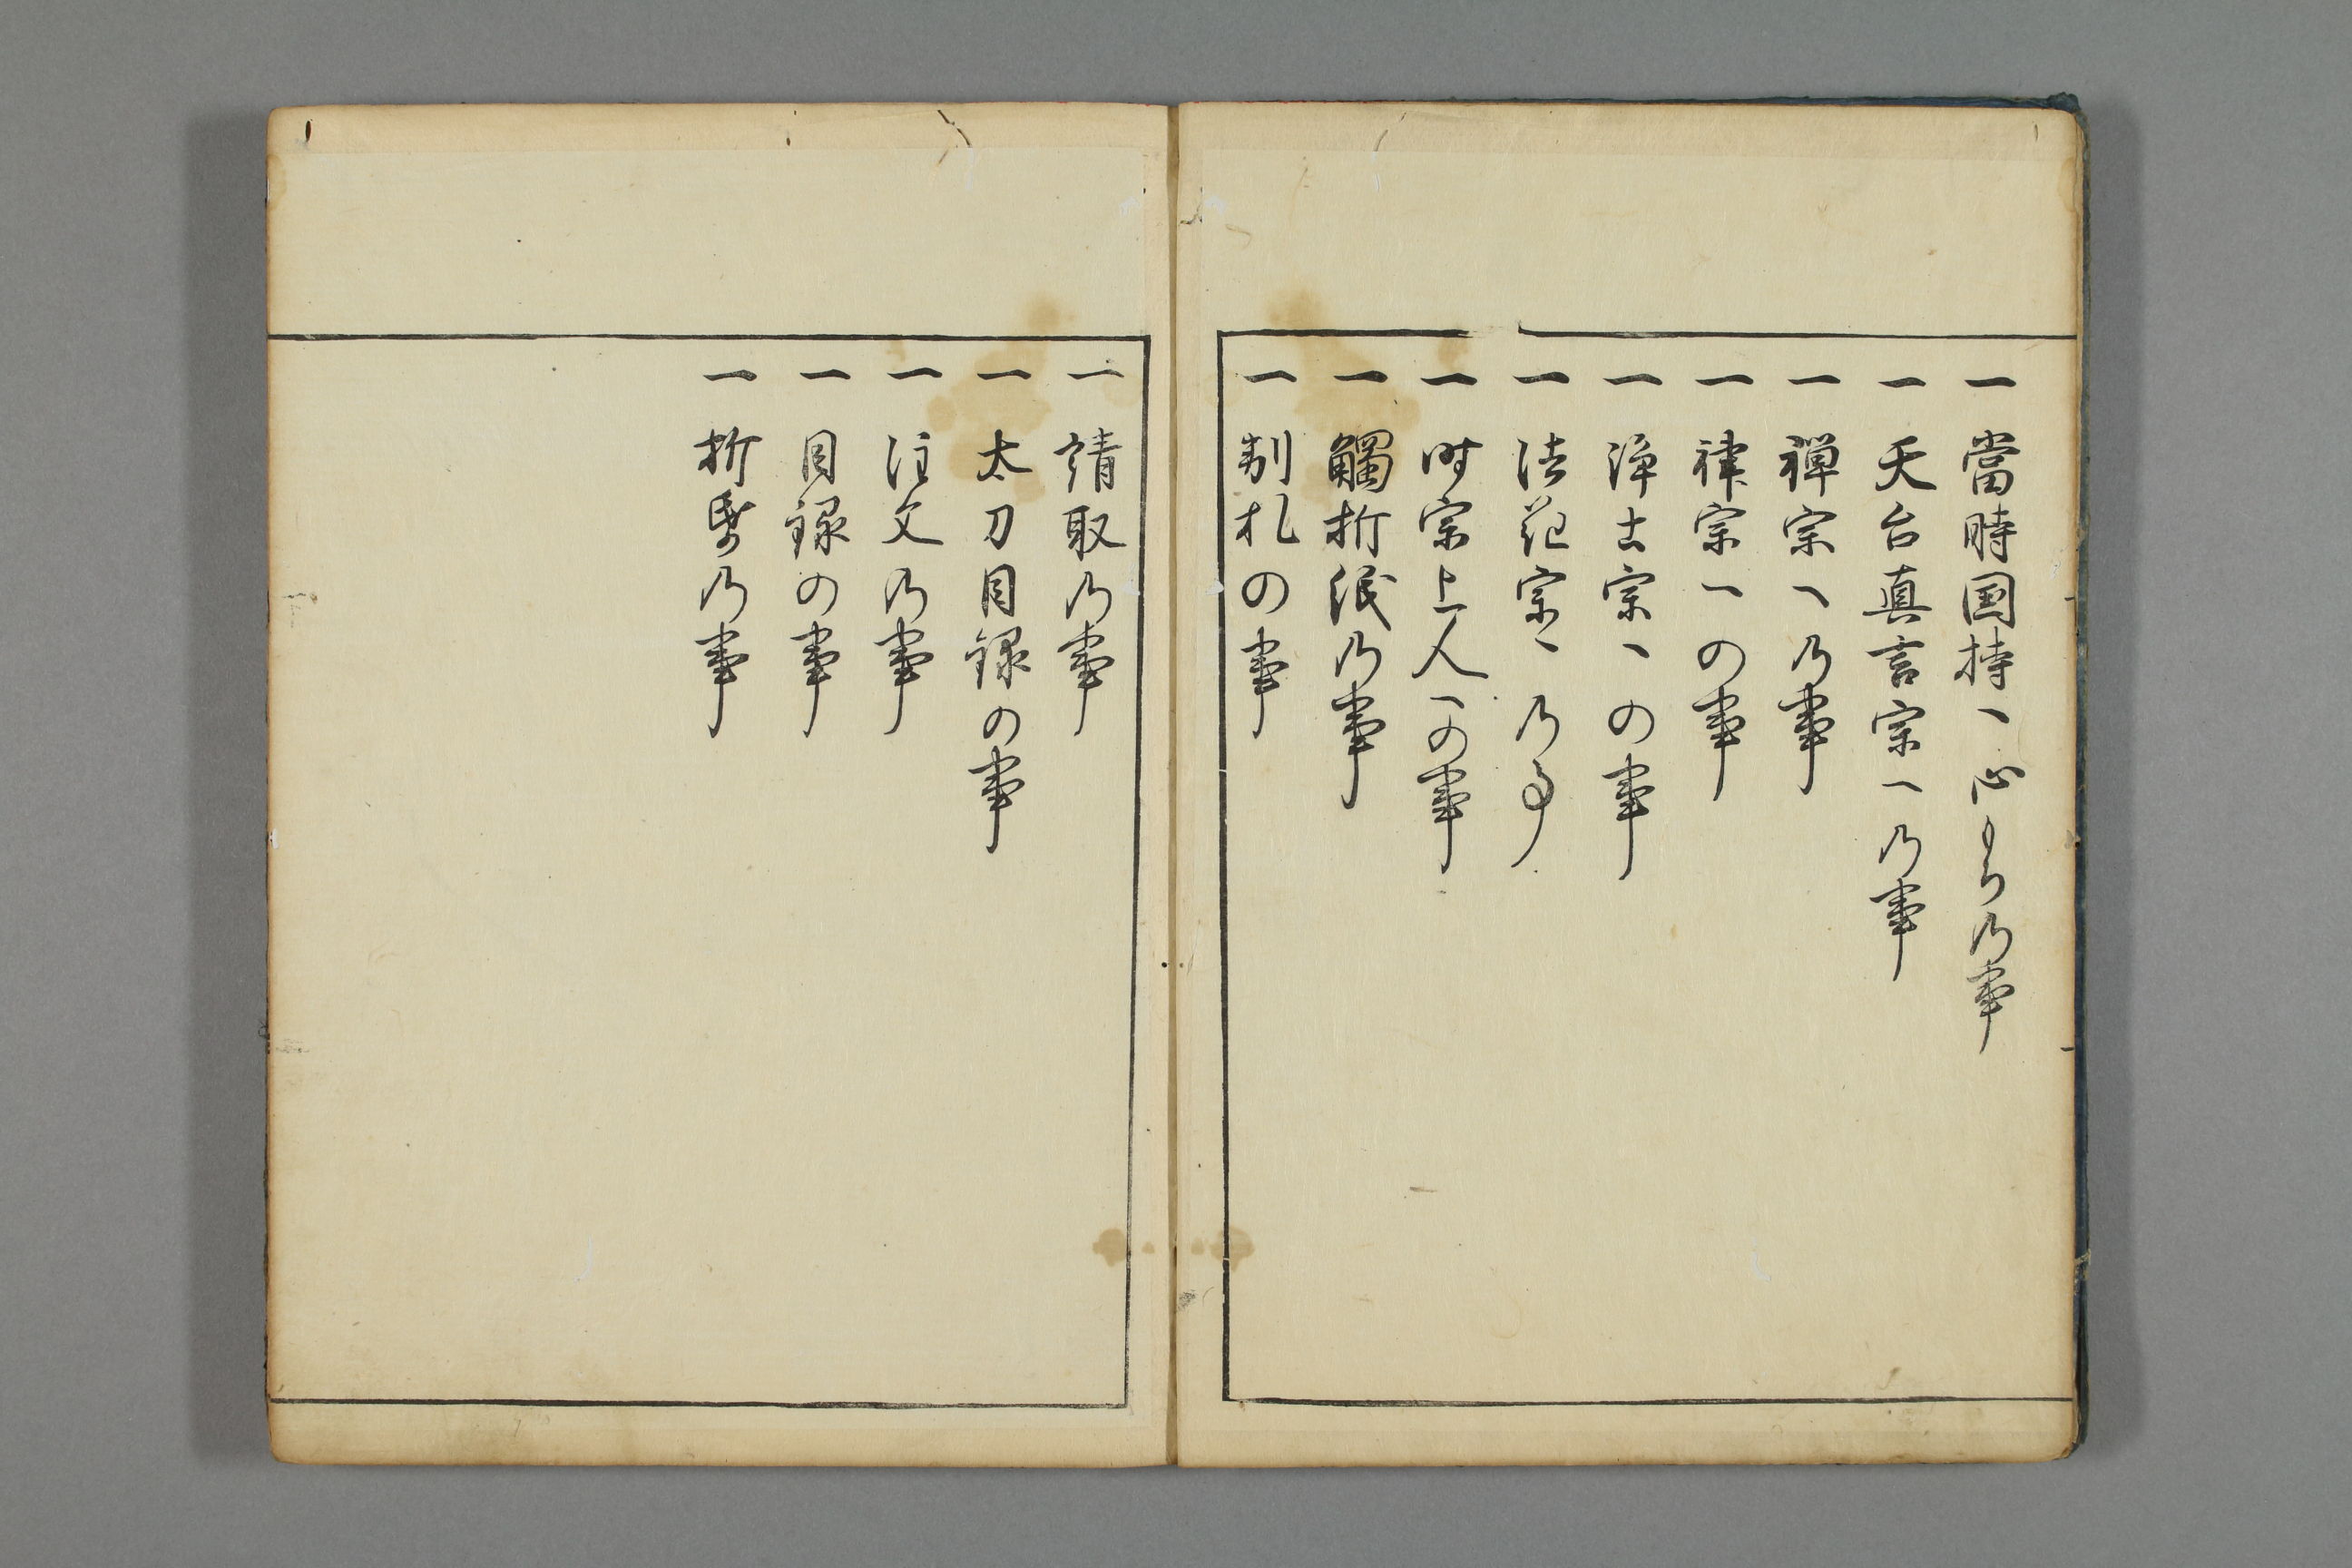 一 當時国持へ心もちの事
一 天台真言宗への事
一 禅宗への事
一 律宗への事
一 浄土宗への事
一 法花宗への事
一 时宗上人への事
一 觸折紙の事
一 制札の事
一 請取の事
一 太刀目録の事
一 注文の事
一 目録の事
一 折帋の事